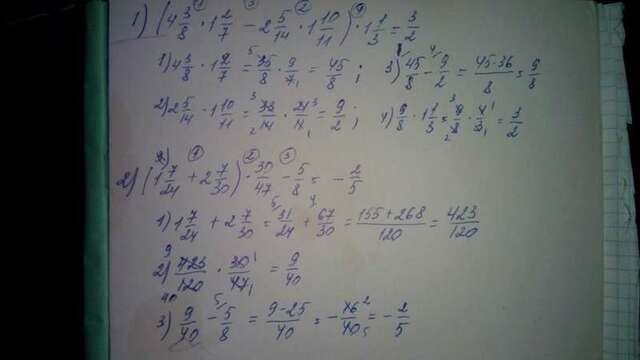 1) (4 3/8 · 1 2/7 − 2 5/14 · 1 10/11) · 1 1/3 = 3/2
1) 4 3/8 · 1 2/7 = 35/8 · 9/7 = 45/8 ; 3) 45/8 − 9/2 = 45-36/8 = 9/8
2) 2 5/14 · 1 10/11 = 33/14 · 21/11 = 9/2 ; 4) 9/8 · 1 1/3 = 9/8 · 4/3 = 3/2
2) (1 7/24 + 2 7/30) · 30/47 − 5/8 = − 2/5
1) 1 7/24 + 2 7/30 = 31/24 + 67/30 = 155+268/120 = 423/120
2) 423/120 · 30/47 = 9/40
3) 9/40 − 5/8 = 9-25/40 = − 16/40 = − 2/5